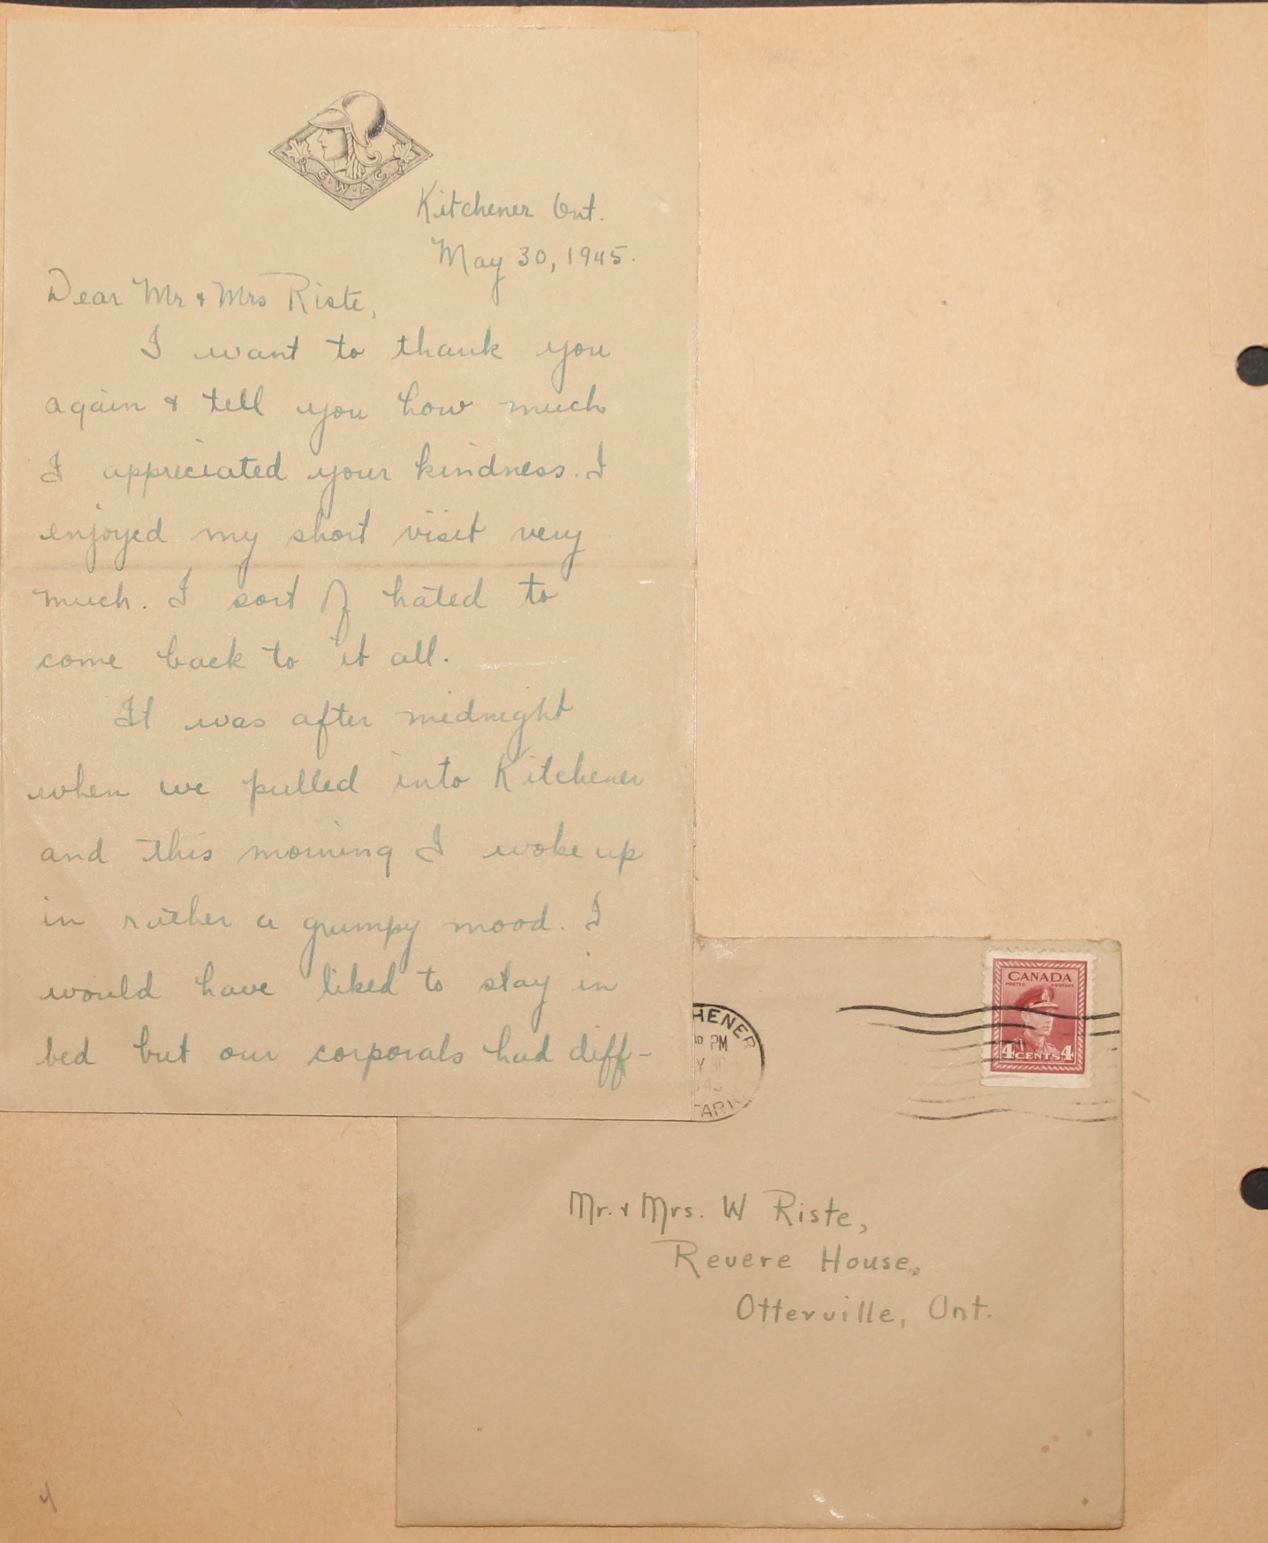 C·W·A·C
Kitchener Ont.
May 30, 1945.
Dear Mr & Mrs Riste,
I want to thank you
again & tell you how much
I appreciated your kindness. I
enjoyed my short visit very
much. I sort of hated to
come back to it all.
It was after midnight
when we pulled into Kitchener
and this morning I woke up
in rather a grumpy mood. I
would have liked to stay in
bed but our corporals had diff-
HENER
PM
CANADA
POSTES POSTAGE
4 CENTS 4
Mr. & Mrs. W Riste,
Revere House,
Otterville, Ont.
4